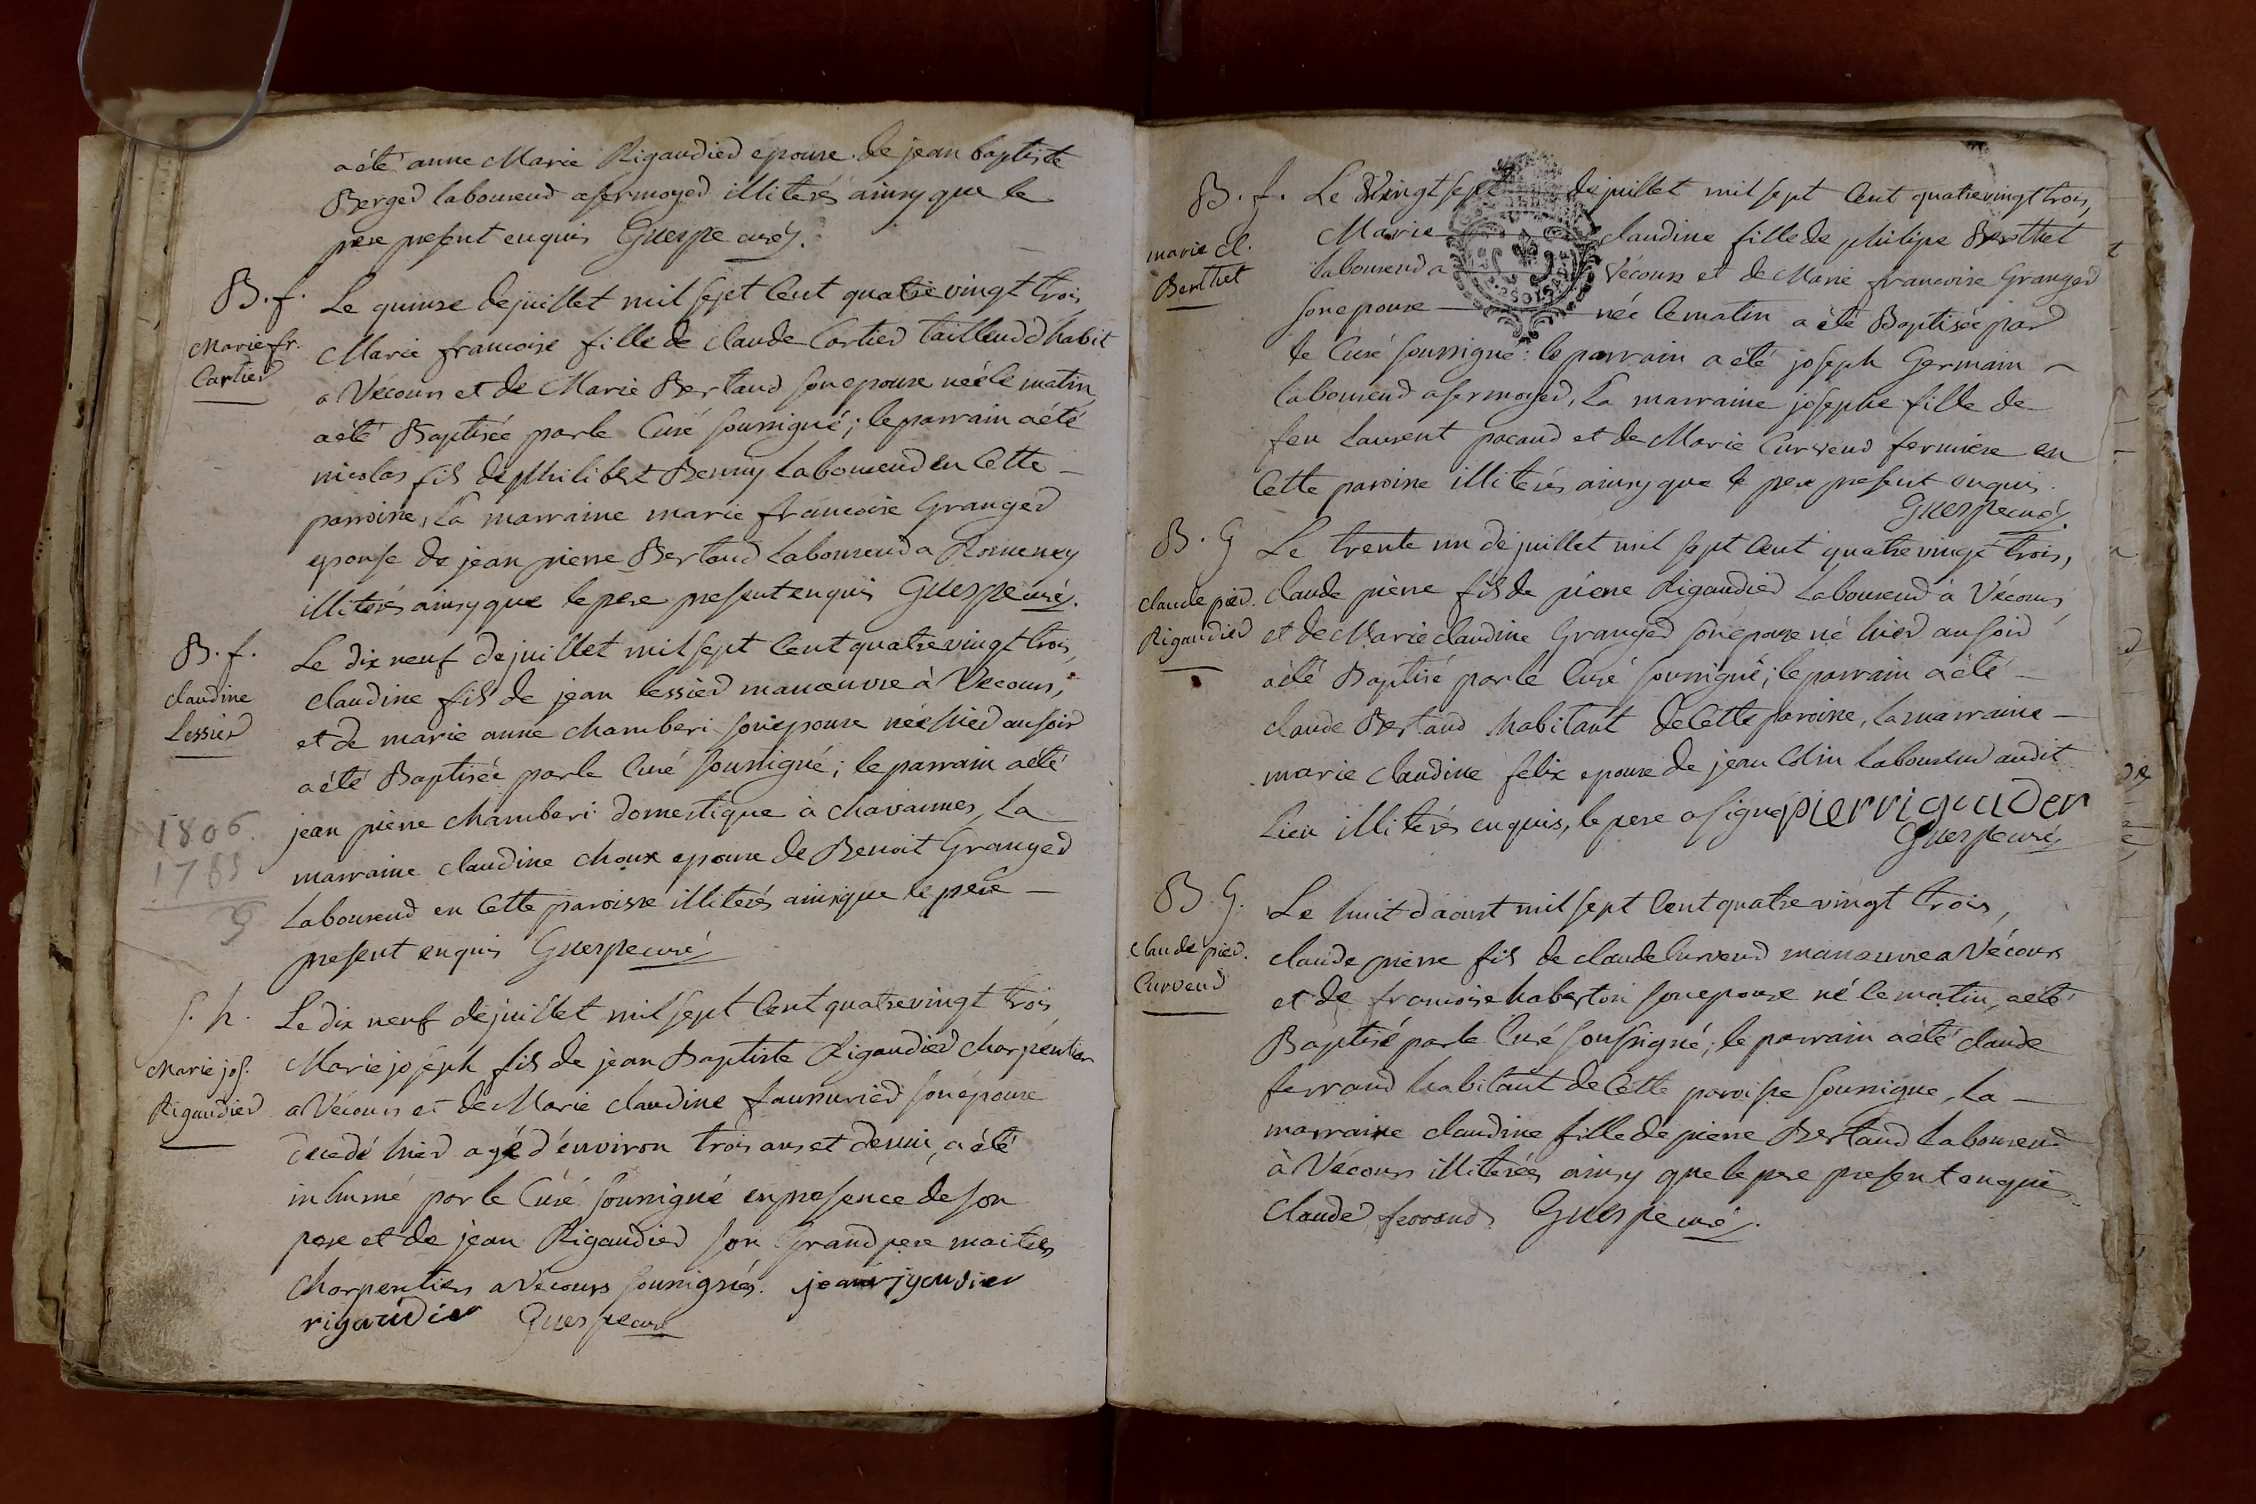 a été anne Marie Rigaudier epouse de jean baptiste
Berger laboureur a fermoyer illiterés ainsy que le
pere present enquis Guerpe curé.
B. f.
Marie fr.
Cartier
Le quinse de juillet mil sept Cent quatre vingt trois,
Marie francoise fille de claude Cartier tailleur d'habit
a Vécours et de Marie Bertaud son epouse née le matin,
a été Baptisée par le Curé soussigné; le parrain a été
nicolas fils de philibert Benny laboureur en Cette
parroisse, La marraine marie francoise Granger
epouse de jean pierre Bertaud Laboureur a Romenay
illiterés ainsy que le pere present enquis Guerpe curé.
B. f.
claudine
Lessier
Le dix neuf de juillet mil sept Cent quatre vingt trois,
claudine fils de jean lessier manœuvre à Vecours,
et de marie anne chamberi son epouse née hier au soir
a été Baptisée par le Curé soussigné; le parrain a été
jean pierre chamberi domestique à chavannes, La
marraine claudine choux epouse de Benoit Granger
Laboureur en Cette paroisse illiterés ainsi que le pere
present enquis Guerpe curé
1806.
1783
S. h.
Marie jos.
Rigaudier
Le dix neuf de juillet mil sept Cent quatre vingt trois
Marie joseph fils de jean Baptiste Rigaudier charpentier
a Vécours et de Marie claudine son épouse
decedé hier agé d'environ trois ans et demi, a été
inhumé par le Curé soussigné en presence de son
pere et de jean Rigaudier son Grand pere maitres
charpentiers a Vecours soussignés. jean rigaudier
rigaudier Guerpe curé
B. f.
marie cl.
Berthet
Le vingt sept de juillet mil sept Cent quatre vingt trois,
Marie claudine fille de philipe Berthet
laboureur a Vécours et de Marie francoise Granger
son epouse née le matin a été Baptisée par
le Curé soussigné: le parrain a été joseph Germain
laboureur a fermoyer, La marraine josephe fille de
feu Laurent pacaud et de Marie Curveur fermiere en
Cette paroisse illiterés ainsy que le pere present enquis.
Guerpe curé.
B. G
claude pier.
Rigaudier
Le trente un de juillet mil sept Cent quatre vingt trois,
claude pierre fils de pierre Rigaudier Laboureur à Vécours,
et de Marie claudine Granger son épouse né hier au soir
a été Baptisé par le Curé soussigné; le parrain a été
claude Bertaud habitant de Cette paroisse, la marraine
marie claudine felix epouse de jean Colin laboureur audit
Lieu illiterés enquis, le pere a signé pierrigauder
Guerpe curé
B. G.
claude pier.
Curveur
Le huit d'aoust mil sept Cent quatre vingt trois,
claude pierre fils de claude Curveur manœuvre a Vécours
et de francoise haberton son epouse né le matin, a été
Baptisé par le Curé soussigné; le parrain a été claude
ferraud habitant de Cette paroisse soussigné, La
marraine claudine fille de pierre Bertaud Laboureur
à Vécours illiterées ainsy que le pere present enquis
Claude ferroud Guerpe curé.